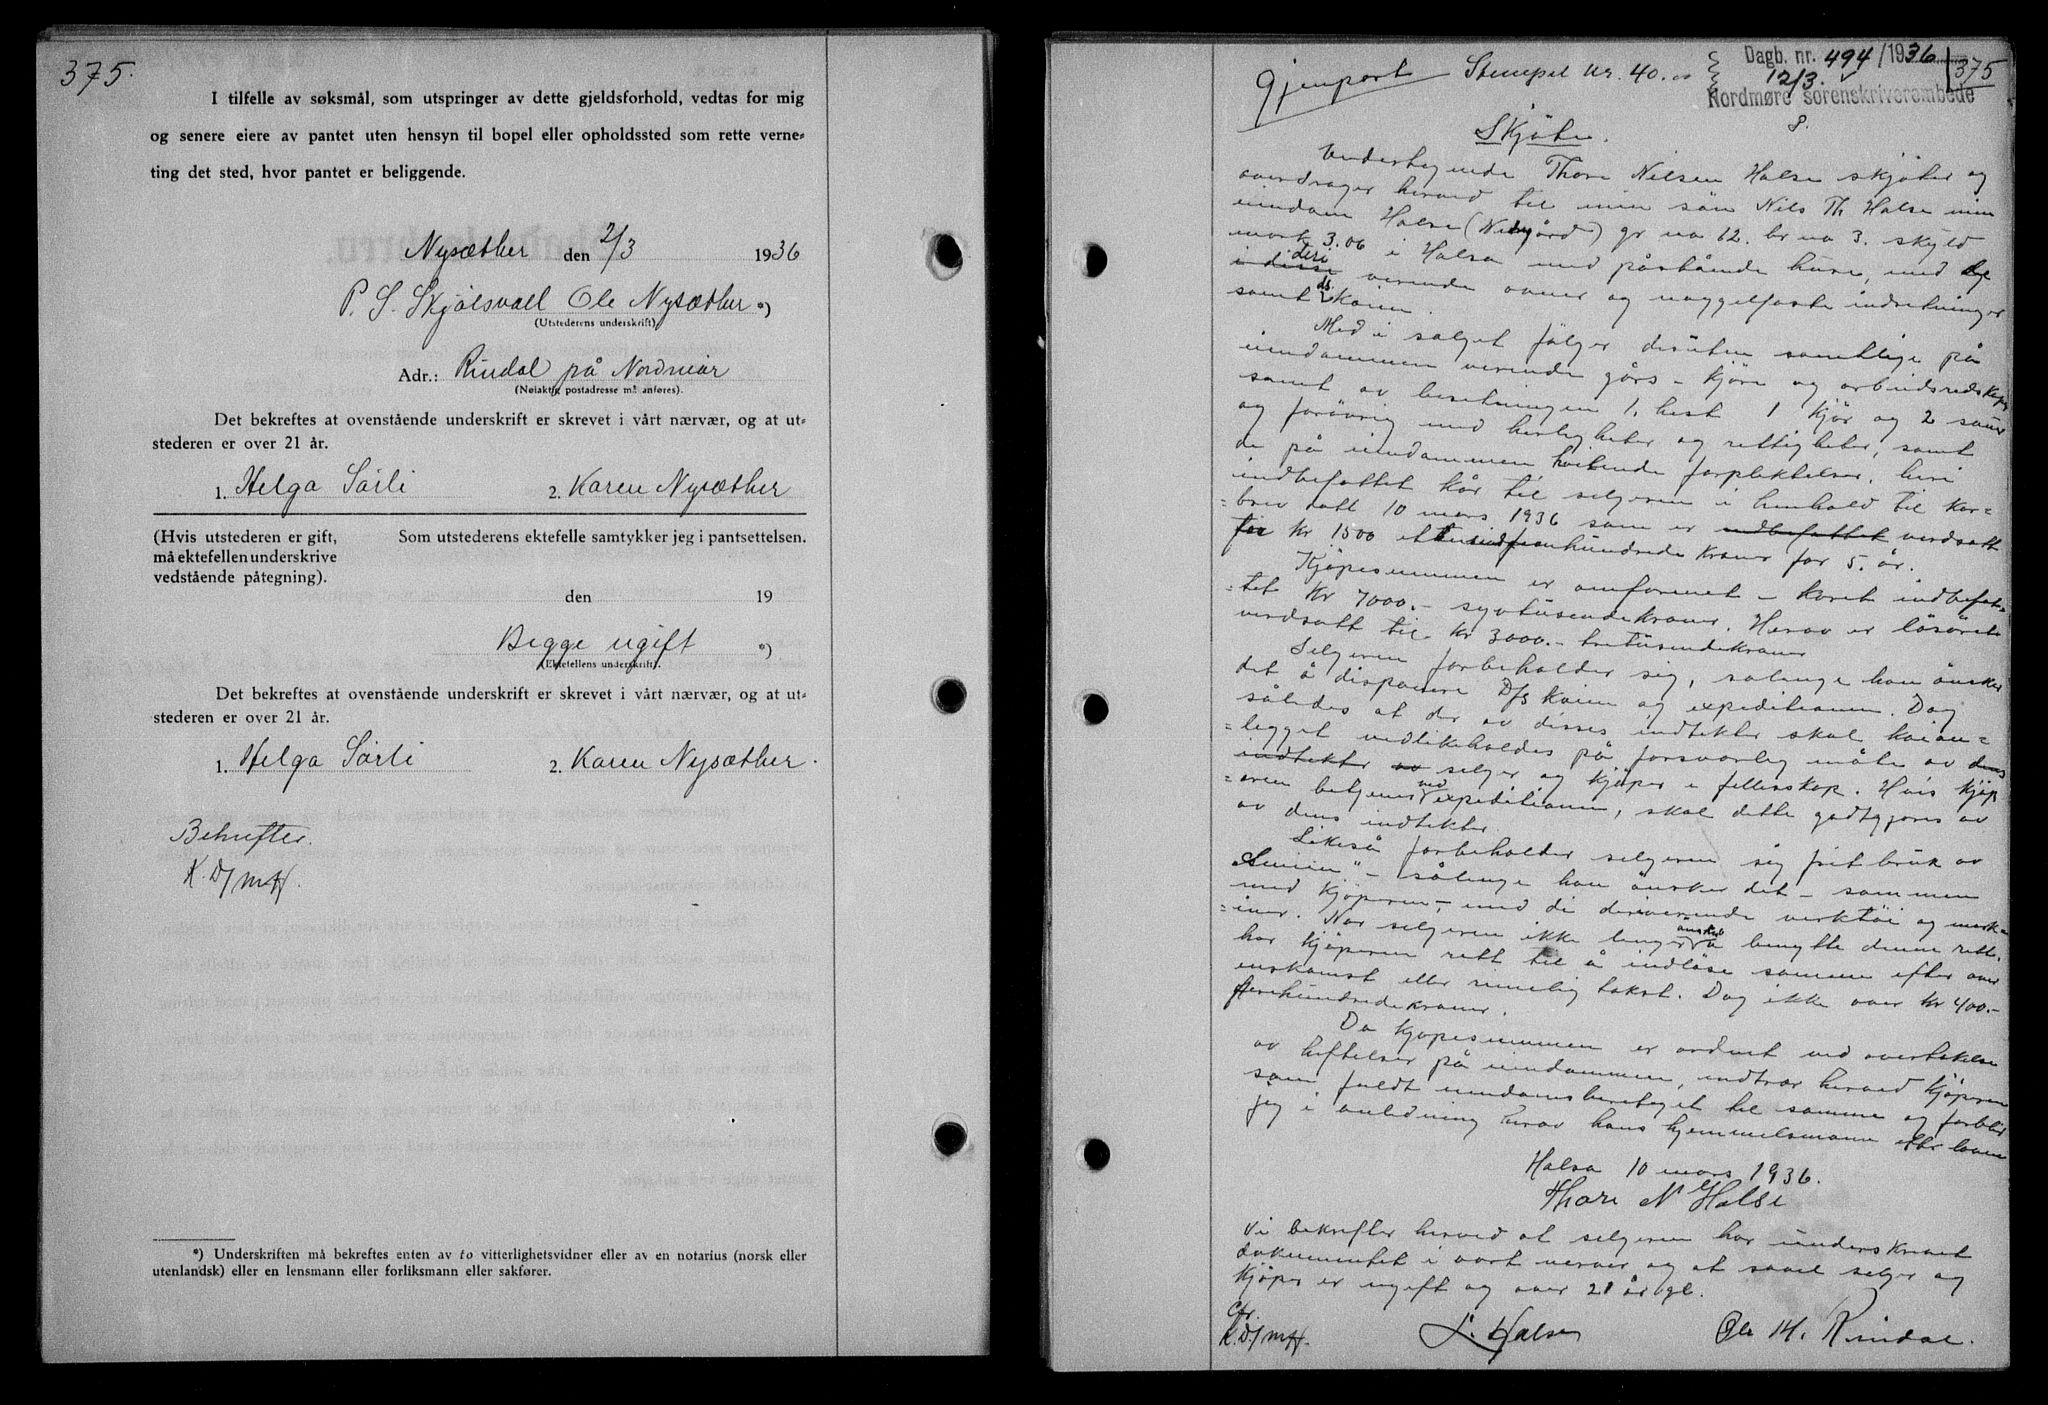 375.
I tilfelle av søksmål, som utspringer av dette gjeldsforhold, vedtas for mig
og senere eiere av pantet uten hensyn til bopel eller opholdssted som rette verne=
ting det sted, hvor pantet er beliggende.
Nysæther den 2/3 1936
P. S. Skjølsvall Ole Nysæther *)
(Utstederens underskrift)
Adr.: Rindal på Nordmør
(Nøiaktig postadresse må anføres).
Det bekreftes at ovenstående underskrift er skrevet i vårt nærvær, og at ut=
stederen er over 21 år.
1. Helga Sørli 2. Karen Nysæther
(Hvis utstederen er gift,
må ektefellen underskrive
vedstående påtegning).
Som utstederens ektefelle samtykker jeg i pantsettelsen.
den 19
Begge ugift *)
(Ektefellens underskrift).
Det bekreftes at ovenstående underskrift er skrevet i vårt nærvær, og at ut=
stederen er over 21 år.
1. Helga Sørli 2. Karen Nysæther.
Bekrefter.
*) Underskriften må bekreftes enten av to vitterlighetsvidner eller av en notarius (norsk eller
utenlandsk) eller en lensmann eller forliksmann eller sakfører.
Gjenpart Stempel kr. 40.00
Dagb. nr. 494/1936 375
12/3.
Nordmøre sorenskriverembede
8.
Skjöte.
Undertegnede Thore Nilsen Halse skjöter og
overdrager herved til min sön Nils Th Halse min
eiendom Halse (Nedgård) gr no 62. br no 3. skyld
mark 3.06 i Halsa med påstående huse, med de
i disse deri verende ovner og naggelfaste indretninger
samt ds. kaien.
Med i salget fölger desuten samtlige på
eiendommen verende gårs- kjöre og arbeidsredskaper
samt av besetningen 1. hest 1 kjör og 2 sauer
og forövrig med herligheter og rettigheter, samt
de på eiendommen hvilende forpliktelser, heri
indbefattet kår til selgeren i henhold til kår=
=brev datt 10 mars 1936 som er indbefattet verdsatt
for kr 1500 ettusindfemhundrede kroner for 5. år.
Kjöpesummen er omforenet - koret indbefat=
=tet kr 7000.- syvtusendekroner. Herav er lösöret
verdsatt til kr 3000.- tretusendekroner
Selgeren forbeholder sig, solenge han önsker
det å disponere D/s kaien og expeditionen. Dog
således at der av disses indtekter skal kaian=
=legget vedlikeholdes på forsvarlig måte av dens
indtekter av selger og kjöper i fellesskap. Hvis kjöp=
=eren betjener ved expeditionen, skal dette godtgjöres av
av dens indtekter.
Likeså forbeholder selgeren sig frit bruk av
"Smien" - sålenge han önsker det - sammen
med kjöperen,- med de deriverende verktöi og mask=
=iner. Når selgeren ikke lenger önsker å benytte denne rett,
har kjöperen rett til å indlöse samme efter over
enskomst eller rimelig takst. Dog ikke over kr 400.-
firehundredekroner.
Da kjöpesummen er ordnet ved overtakelse
av heftelser på eiendommen, indtrær herved kjöperen
som fuldt eiendomsberettiget til samme og forblir
jeg i anledning herav hans hjemmelsmann efter loven
Halsa 10 mars 1936.
Thore N Halse
Vi bekrefter herved at selgeren har underskrevet
dokumentet i vort nerver og at såvel selger og
kjöper er ugift og over 21 år gl.
L. Halsen Ole H. Rindal.